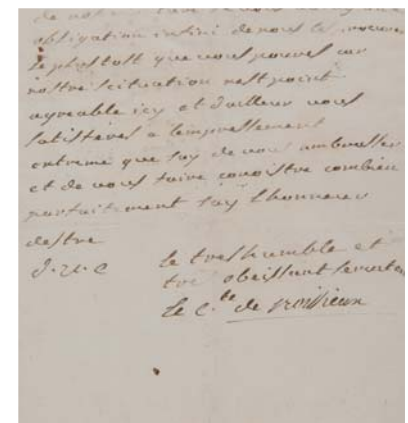 obligation infini de nous le
le plustost que vous pouves car
nostre scituation nest point
agreable icy et dailleur vous
satisferes a lempressement
extreme que jay de vous ambrasser
et de vous faire conoistre combien
parfaitement jay lhonneur
destre
le tres humble et
tre obeissant
Le C.te de